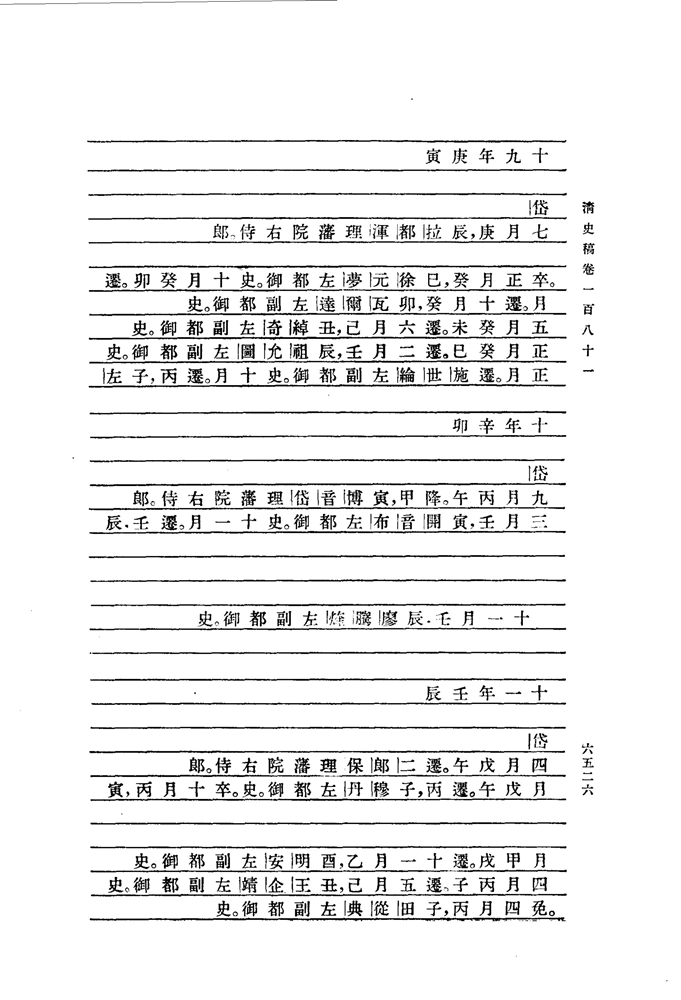 清史稿卷一百八十一
十九年庚寅
岱
七月庚辰,拉都渾理藩院右侍郎。
卒。正月癸巳,徐元夢左都御史。十月癸卯遷。
月遷。十月癸卯,瓦爾達左副都御史。
五月癸未遷。六月己丑,綽奇左副都御史。
正月癸巳遷。二月壬辰,祖允圖左副都御史。
正月遷。施世綸左副都御史。十月丙子,遷。左
十年辛卯
岱
九月丙午降。甲寅,博音岱理藩院右侍郎。
三月壬寅,開音布左都御史。十一月壬辰遷。
十一月壬辰,廖騰煃左副都御史。
十一年壬辰
岱
四月戊午遷。二郎保理藩院右侍郎。
月戊午遷。丙子,穆丹左都御史。卒。十月丙寅,
月甲戌遷。十一月乙酉,明安左副都御史。
四月丙子遷。五月己丑,王企靖左副都御史。
免。四月丙子,田從典左副都御史。
六五二六